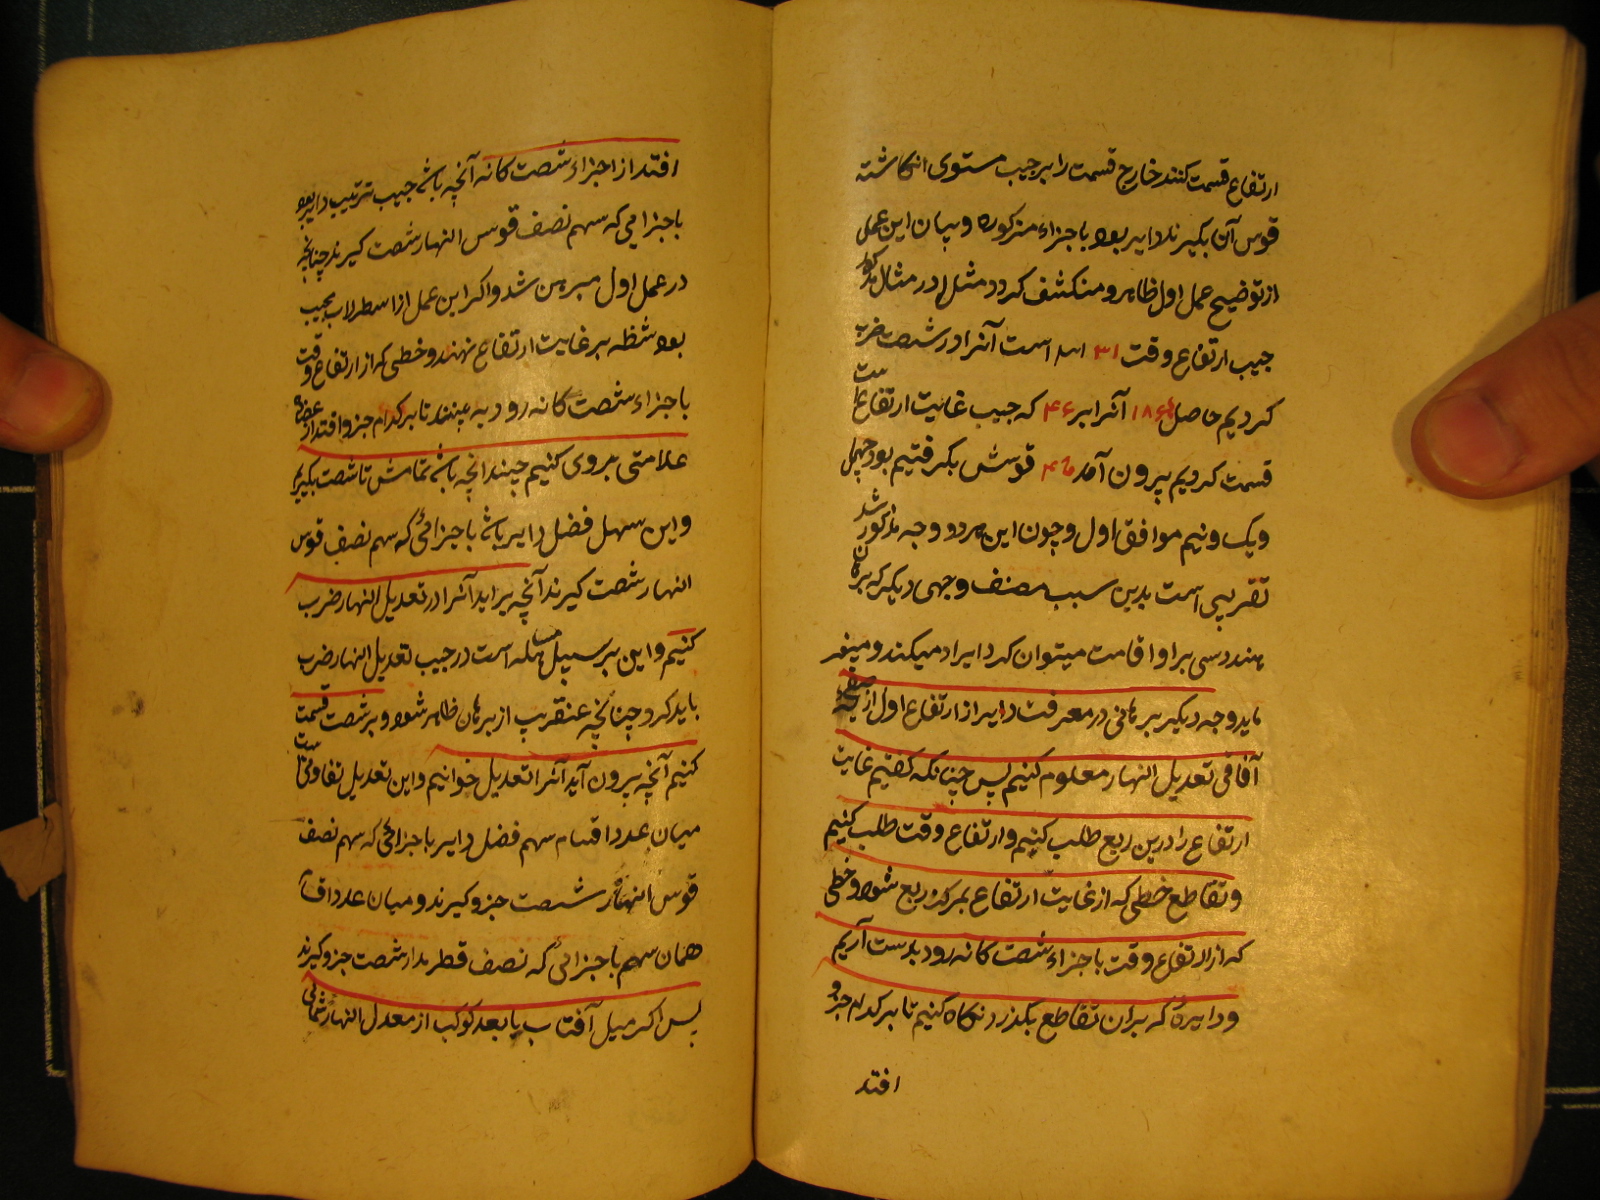 ارتفاع قسمت کنند خارج قسمت را بر جیب مستوی انکاشته
قوس آن بکیرند دایر بود باجزاء مذکوره و بیان این عمل
از توضیح عمل اول ظاهر و منکشف کردد مثلا در مثال مذکور
جیب ارتفاع وقت ۳۱ است آنرا در شصت ضرب
کردیم حاصل ۱۸۶۰ آنرا بر ۴۶ که جیب غایت ارتفاع است
قسمت کردیم بیرون آمد ۴۰ قوسش بکرفتیم بود چهل
و یک و نیم موافق اول و چون این هر دو وجه مذکور شد
تقریبی است بدین سبب مصنف وجهی دیکر که برهان
هندسی برا و اقامت میتوان کرد ایراد میکند و میفر
ماید وجه دیکر برهانی در معرفت دایر از ارتفاع اول از
آفاقی تعدیل النهار معلوم کنیم پس چنانکه کفتیم غایت
ارتفاع را درین ربع طلب کنیم و ارتفاع وقت طلب کنیم
و تقاطع خطی که از غایت ارتفاع بمرکز ربع شود و خطی
که از ارتفاع وقت باجزاء شصت کانه رود بدست آریم
و دایرهٔ که بران تقاطع بکذرد نکاه کنیم تا بر کدام جزو
افتد
افتد از اجزاء شصت کانه آنچه باشد جیب ترتیب دایر بود
باجزایی که سهم نصف قوس النهار شصت کیرند چنانچه
در عمل اول مبرهن شد و اکر این عمل از اسطرلاب مجیب
بود شظه بر غایت ارتفاع نهند و خطی که از ارتفاع وقت
باجزاء شصت کانه رود به بینند تا بر کدام جزو افتد از عضاده
علامتی بروی کنیم چندانچه باشد تمامش تا شصت بکیریم
و این سهل فضل دایر باشد باجزائی که سهم نصف قوس
النهار شصت کیرند آنچه برآید آنرا در تعدیل النهار ضرب
کنیم و این بر سبیل مساهله است در جیب تعدیل النهار ضرب
باید کرد چنانچه عنقریب از برهان ظاهر شود و بر شصت قسمت
کنیم آنچه بیرون آید آنرا تعدیل خوانیم و این تعدیل تفاوتی است
میان عدد اقسام سهم فضل دایر باجزائی که سهم نصف
قوس النهار شصت جزو کیرند و میان عدد اقسام
همان سهم باجزائی که نصف قطر مدار شصت جزو کیرند
پس اکر میل آفتاب یا بعد کوکب از معدل النهار شمالی